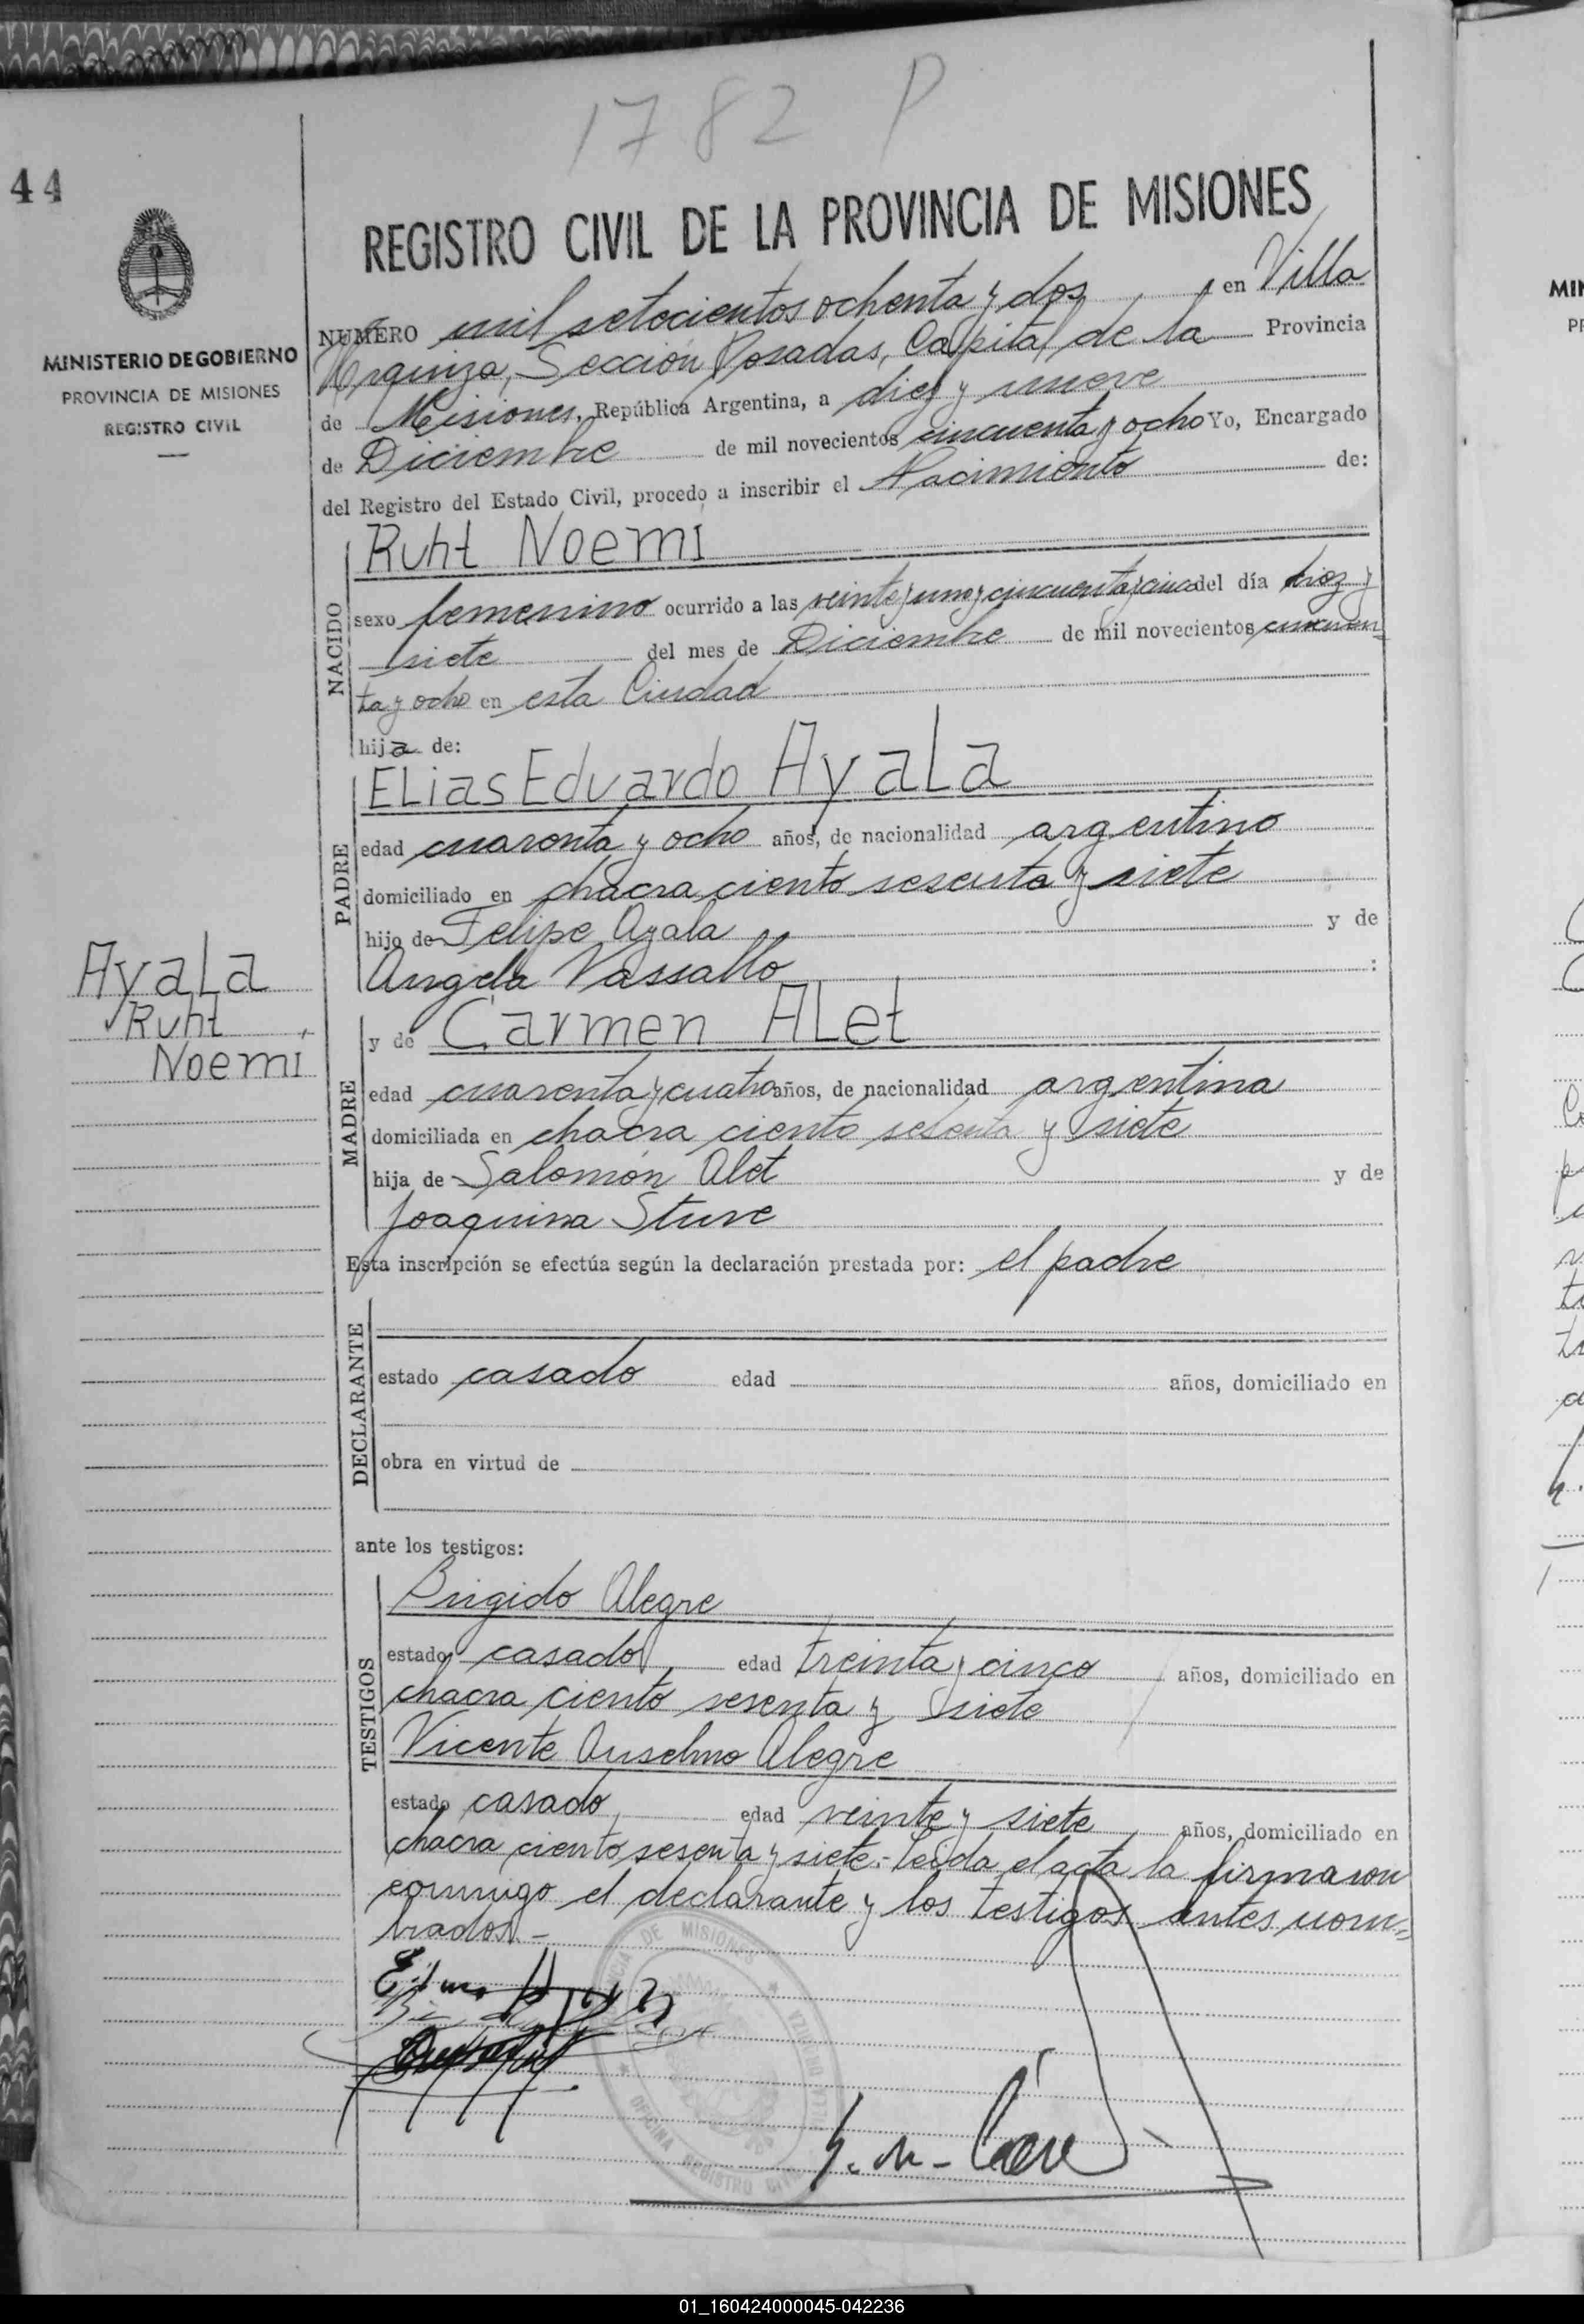 1782 P
44
MINISTERIO DE GOBIERNO
PROVINCIA DE MISIONES
REGISTRO CIVIL
REGISTRO CIVIL DE LA PROVINCIA DE MISIONES
NUMERO mil setecientos ochenta y dos, en Villa
Urquiza, Sección Posadas, Capital de la Provincia
de Misiones, República Argentina, a diez y nueve
de Diciembre de mil novecientos cincuenta y ocho Yo, Encargado
del Registro del Estado Civil, procedo a inscribir el Nacimiento de:
NACIDO
Ruht Noemi
sexo femenino ocurrido a las veinte y uno y cincuenta y cinco del día diez y
siete del mes de Diciembre de mil novecientos cincuen
ta y ocho en esta Ciudad
hija de:
PADRE
Elias Eduardo Ayala
edad cuaronta y ocho años, de nacionalidad argentino
domiciliado en chacra ciento sesenta y siete
hijo de Felipe Ayala y de
Angela Vassallo :
Ayala
Ruht
Noemi
MADRE
y de Carmen Alet
edad cuarenta y cuatro años, de nacionalidad argentina
domiciliada en chacra ciento sesenta y siete
hija de Salomón Alet y de
Joaquina Sture
Esta inscripción se efectúa según la declaración prestada por: el padre
DECLARANTE
estado casado edad años, domiciliado en
obra en virtud de
ante los testigos:
TESTIGOS
Brigido Alegre
estado casado, edad treinta y cinco años, domiciliado en
chacra ciento sesenta y siete
Vicente Anselmo Alegre
estado casado, edad veinte y siete años, domiciliado en
chacra ciento sesenta y siete.- Leida el acta la firma con
conmigo el declarante y los testigos antes nom-
brados.-
DE MISIONES
OFICINA REGISTRO CIVIL
VILLA URQUIZA
01_160424000045-042236